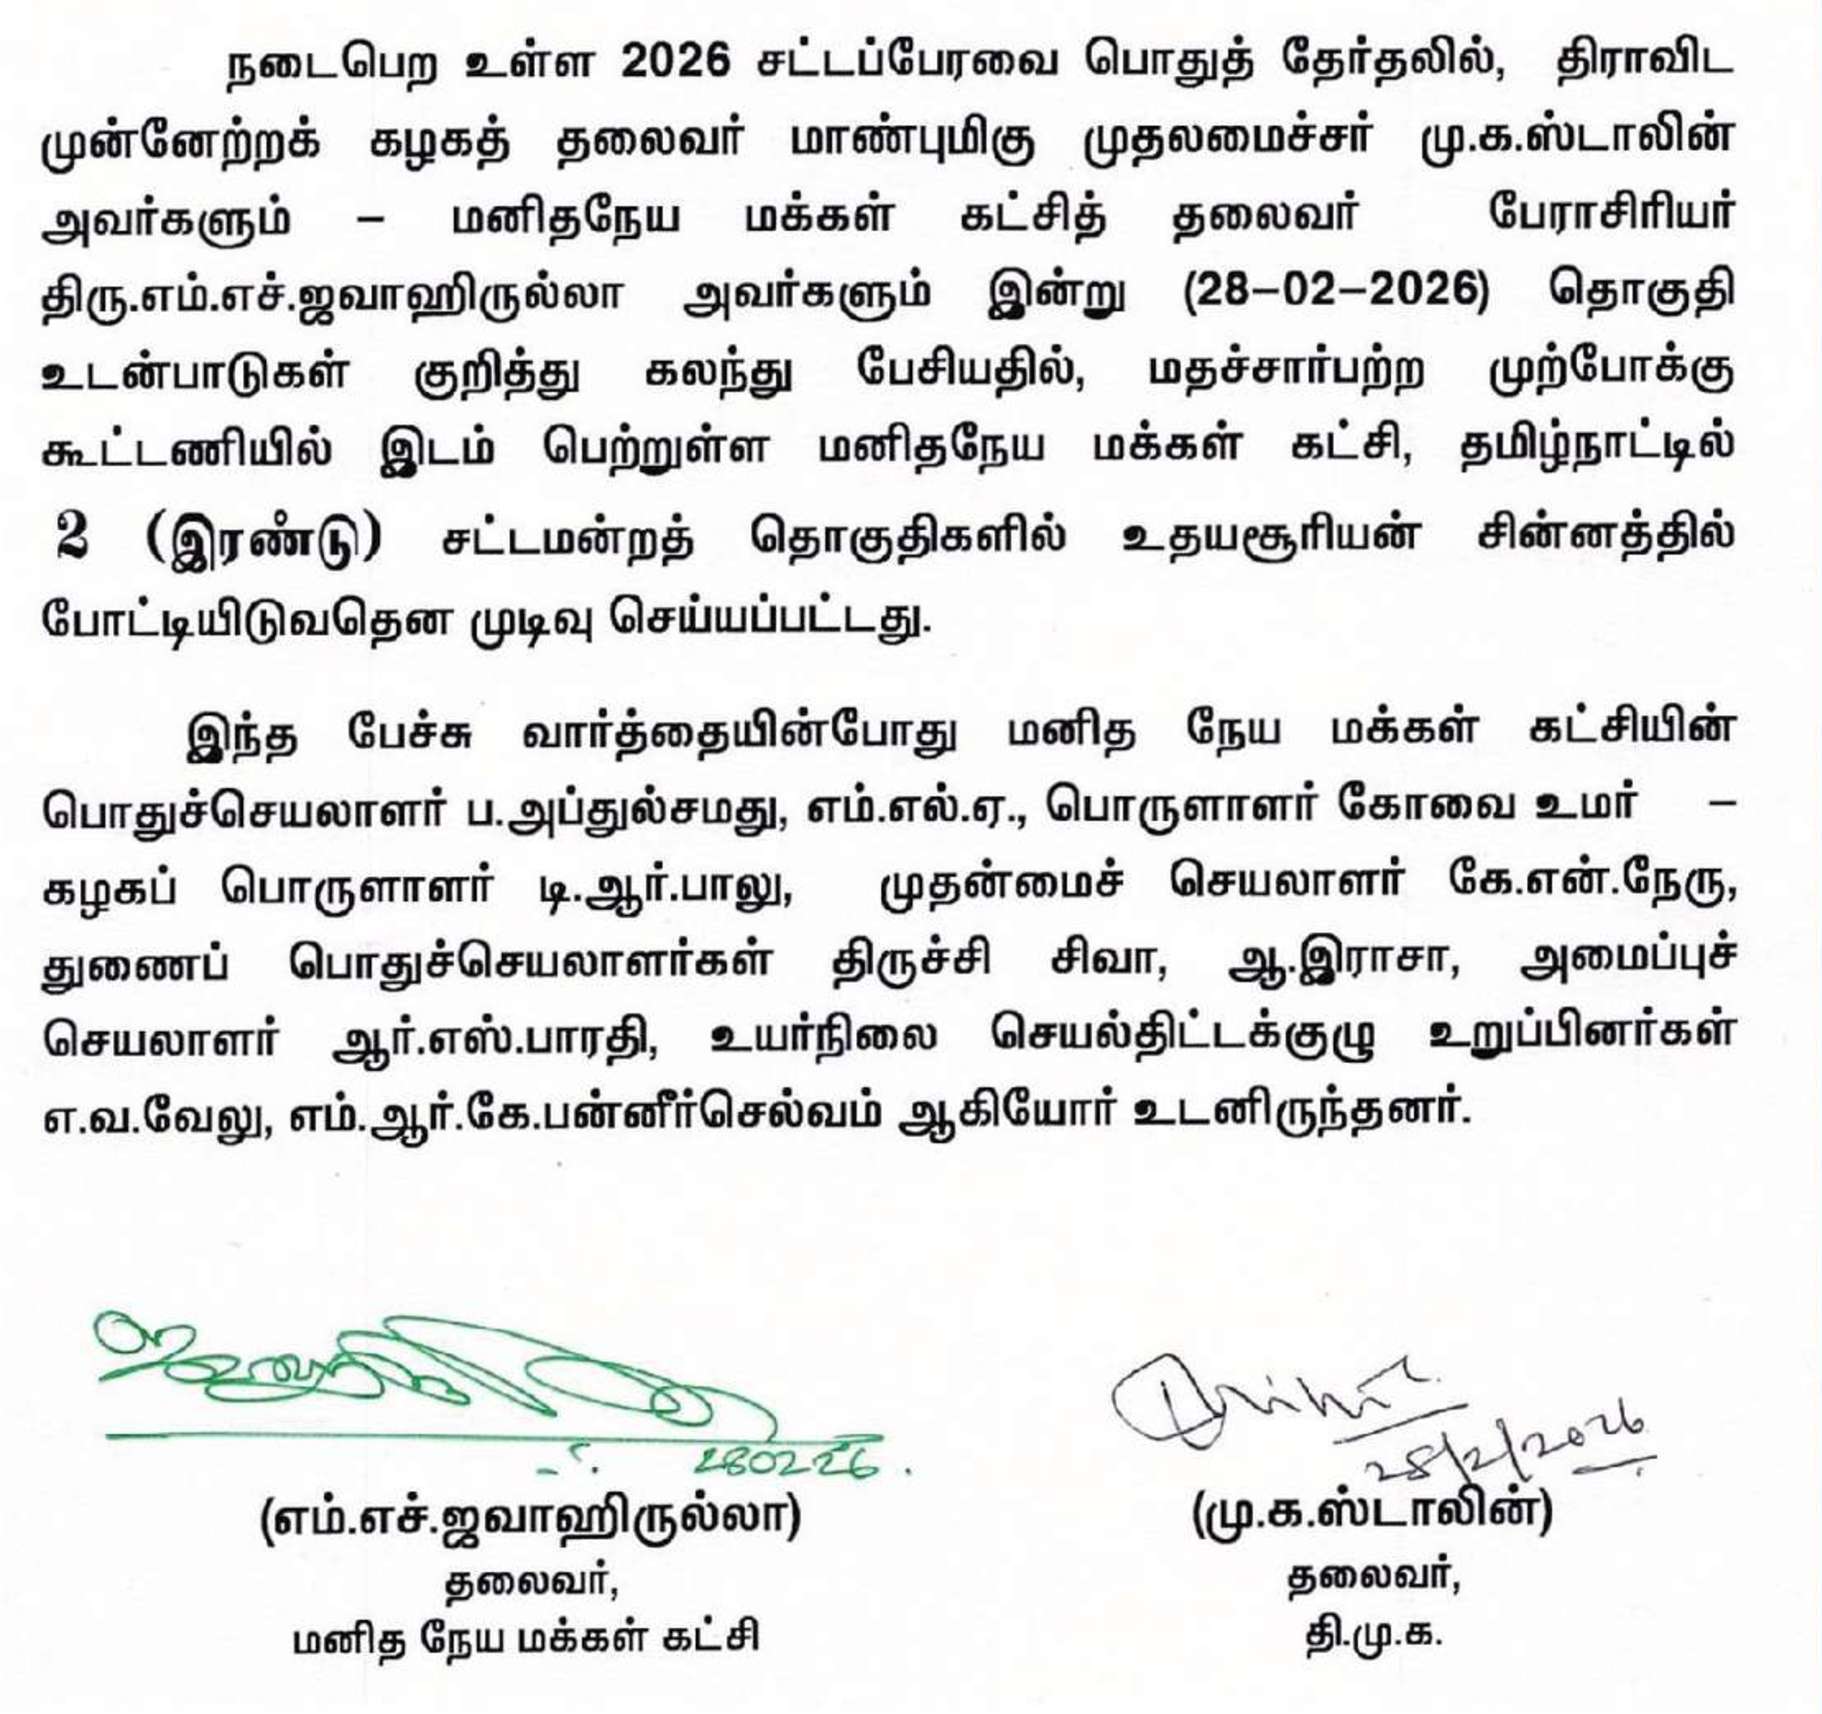 நடைபெற உள்ள 2026 சட்டப்பேரவை பொதுத் தேர்தலில், திராவிட
முன்னேற்றக் கழகத் தலைவர் மாண்புமிகு முதலமைச்சர் மு.க.ஸ்டாலின்
அவர்களும் – மனிதநேய மக்கள் கட்சித் தலைவர் பேராசிரியர்
திரு.எம்.எச்.ஜவாஹிருல்லா அவர்களும் இன்று (28–02–2026) தொகுதி
உடன்பாடுகள் குறித்து கலந்து பேசியதில், மதச்சார்பற்ற முற்போக்கு
கூட்டணியில் இடம் பெற்றுள்ள மனிதநேய மக்கள் கட்சி, தமிழ்நாட்டில்
2 (இரண்டு) சட்டமன்றத் தொகுதிகளில் உதயசூரியன் சின்னத்தில்
போட்டியிடுவதென முடிவு செய்யப்பட்டது.
இந்த பேச்சு வார்த்தையின்போது மனித நேய மக்கள் கட்சியின்
பொதுச்செயலாளர் ப.அப்துல்சமது, எம்.எல்.ஏ., பொருளாளர் கோவை உமர் –
கழகப் பொருளாளர் டி.ஆர்.பாலு, முதன்மைச் செயலாளர் கே.என்.நேரு,
துணைப் பொதுச்செயலாளர்கள் திருச்சி சிவா, ஆ.இராசா, அமைப்புச்
செயலாளர் ஆர்.எஸ்.பாரதி, உயர்நிலை செயல்திட்டக்குழு உறுப்பினர்கள்
எ.வ.வேலு, எம்.ஆர்.கே.பன்னீர்செல்வம் ஆகியோர் உடனிருந்தனர்.
280226.
28/2/2026
(எம்.எச்.ஜவாஹிருல்லா)
தலைவர்,
மனித நேய மக்கள் கட்சி
(மு.க.ஸ்டாலின்)
தலைவர்,
தி.மு.க.